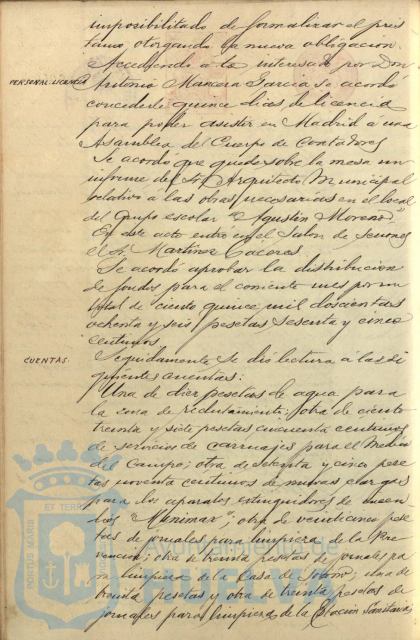 imposibilitado de formalizar el prés
tamo, otorgando la nueva obligación.
Accediendo a lo interesado por Don
PERSONAL: LICENCIA
Antonio Mancera García se acordó
concederle quince días de licencia
para poder asistir en Madrid á una
Asamblea del Cuerpo de Contadores
Se acordó que quede sobre la mesa un
informe del Sr. Arquitecto Municipal
relativo á las obras necesarias en el local
del Grupo escolar "Agustín Moreno".
En este acto entró en el Salón de Sesiones
el Sr. Martínez Cáceres.
Se acordó aprobar la distribución
de fondos para el corriente mes por un
total de ciento quince mil doscientas
ochenta y seis pesetas sesenta y cinco
céntimos
CUENTAS.
Seguidamente se dió lectura á las si
guientes cuentas:
Una de diez pesetas de agua para
la zona de reclutamiento; otra de ciento
treinta y siete pesetas cincuenta céntimos
de servicios de carruajes para el Médico
del Campo; otra de setenta y cinco pese
tas noventa céntimos de nuevas cargas
para los aparatos extinguidores de incen
dios "Minimax"; otra de veinticinco pese
tas de jornales para limpieza de la Pre
vención; otra de treinta pesetas de jornales pa
ra limpieza de la Casa de Socorro; una de
treinta pesetas y otra de treinta pesetas de
jornales para limpieza de la Estación Sanitaria
Ayuntamiento de
HUELVA
PORTUS MARIS
ET TERRAE